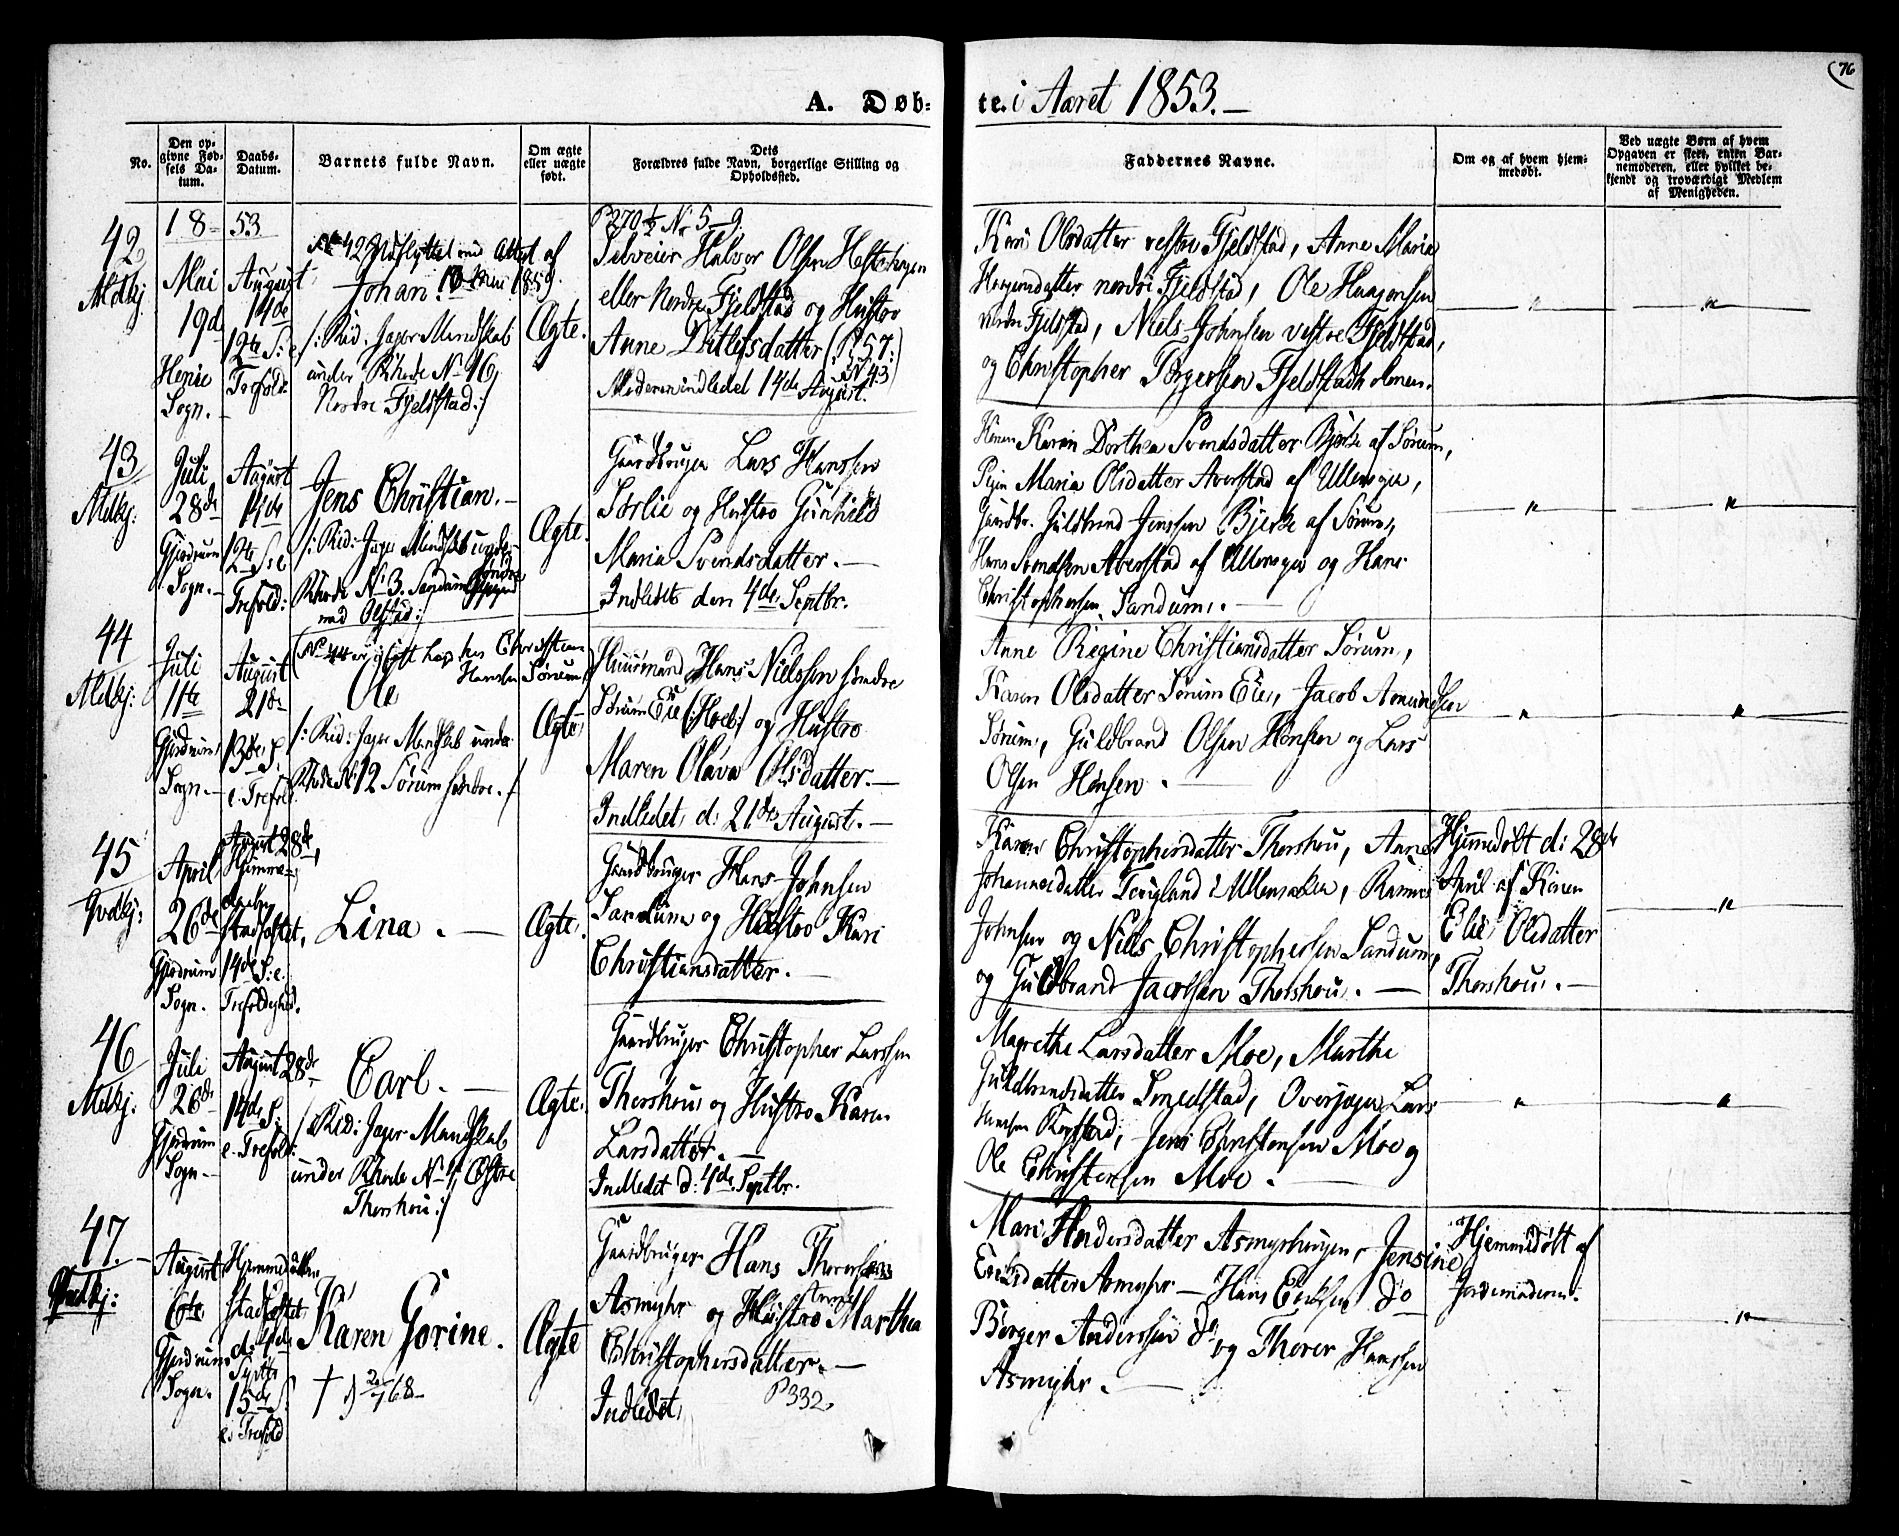 76
A. Døb-te. i Aaret 1853.
No.
Den op-
givne Fød-
sels Da-
tum.
Daabs-
Datum.
Barnets fulde Navn.
Om ægte
eller uægte
født.
Dets
Forældres fulde Navn, borgerlige Stilling og
Opholdssted.
Faddernes Navne.
Om og af hvem hjem-
medøbt.
Ved uægte Børn af hvem
Opgaven er skeet, enten Bar-
nemoderen, eller hvilket be-
kjendt og troværdigt Medlem
af Menigheden.
42
Mdkj.
18-53
Mai
19d
Sogn.
August
14de
12te S: e
Trefold:
No 42 Udflyttet med Attest af
Johan. Mai 1859.
/: Rid: Jæger Mandskab
under Rhode No 16,
Nordre Fjeldstad :/
Ægte.
P 270 1/2 Nr 5-9.
Selveier Halvor Olsen Hestehagen
eller Nordre Fjeldstad og Hustro
Anne Ditlefsdatter (P. 57:
N 43)
Moderen indledet 14de August.
Kari Olsdatter vestre Fjeldstad, Anne Maria
nordre Fjeldstad, Ole Haagensen
nordre Fjelstad, Niels Johnsen vestre Fjeldstad,
og Christopher Torgersen Fjeldstadholmen.
"
"
43
Mdkj:
Juli
28de
Gjerdrum
Sogn.
August
14de
12te S: e
Trefold:
Jens Christian.
/: Rid: Jæger Mandskab under
Rhode No 3. Søndre
med Olstad :/
Ægte.
Gaardbruger Lars Hanssen
Sørlie og Hustro Gunhild
Maria Svendsdatter.
Indledet den 4de Septbr.
Konen Karen Dorthea Svendsdatter Bjerke af Sørum,
Pigen Maria Olsdatter Averstad af Ullensager,
Gaardbr. Guldbrand Jenssen Bjerke af Sørum,
Hans Svendsen Averstad af Ullensager og Hans
Christophersen Sandum.
"
"
44
Mdkj:
Juli
11te
Gjerdrum
Sogn.
August
21de
13de S.
e. Trefold:
(No 44 er hos Christian
Hansen Sørum)
Ole
/: Rid: Jæger Mandskab under
Rhode No 12 Sørum søndre. /
Ægte
Huusmand Hans Nielssen søndre
Sørum Eie (:Hoeb:) og Hustro
Maren Olava Olsdatter.
Indledet d: 21de August.
Anne Regine Christiansdatter Sørum,
Karen Olsdatter Sørum Eie, Jacob Amundsen
Sørum, Guldbrand Olsen Hønsen og Lars
Olsen Hønsen.
"
"
45
Qvdkj:
April
26de
Gjerdrum
Sogn.
August 28de,
Hjemme-
daaben
stadfæstet,
14de S: e.
Trefoldighed.
Lina.
Ægte.
Gaardbruger Hans Johnsen
Sandum og Hustro Kari
Christiansdatter.
Karen Christophersdatter Thorshou, Anne
Johannesdatter i Ullensaker, Rasmus
Johnsen og Niels Christophersen Sandum,
og Guldbrand Jacobsen Thorshou.
Hjemmedøbt d: 28de
April af Konen
Elie Olsdatter
Thorshou.
"
46
Mdkj:
Juli
26de
Gjerdrum
Sogn.
August 28de
14de S:
e. Trefold:
Carl.
/: Rid: Jæger Mandskab
under Rhode No 1, Østre
Thorshou :/
Ægte.
Gaardbruger Christopher Larssen
Thorshou og Hustro Karen
Larsdatter.
Indledet d: 4de Septbr.
Magrethe Larsdatter Moe, Marthe
Guldbrandsdatter Smedstad, Overjæger Lars
Hansen Kogstad, Jens Christensen Moe og
Ole Christensen Moe.
"
"
47.
Qvdkj:
August
6te
Gjerdrum
Sogn.
Hjemmedaaben
stadfæstet
d: 4de
Septbr
15de S.
e. Trefold
Karen Gorine.
† 68
Ægte
Gaardbruger Hans Thoresen
Asmyhr og Hustro Anne Marthea
Christophersdatter.
Indledet,
P 332.
Mari Andersdatter Asmyrhagen, Jensine
Eriksdatter Asmyhr - Hans Eriksen do
Børger Anderssen do og Thorer Hanssen
Asmyhr.
Hjemmedøbt af
Jordemoderen.
"